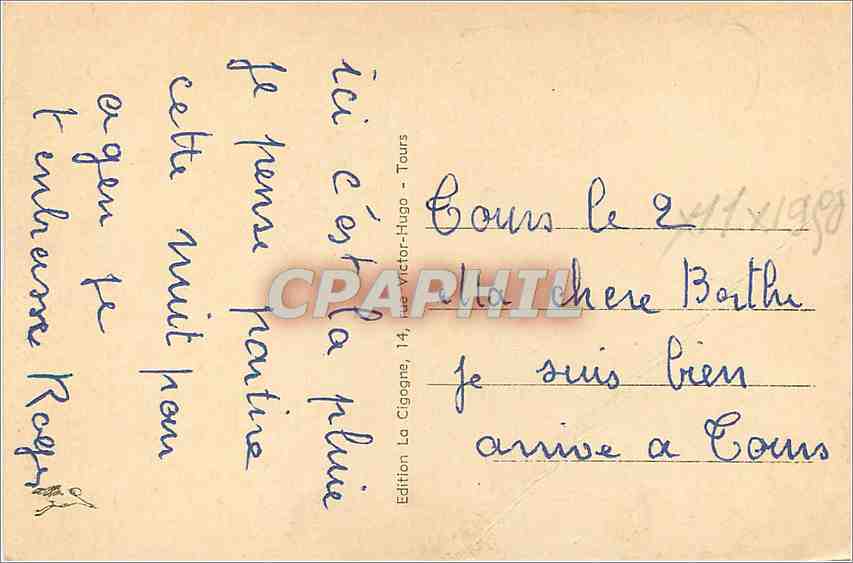 Tours le 2
Ma chere Berthe
je suis bien
arrive a Tours
ici c'est la pluie
je pense partire
cette nuit pour
agen je
t'embrasse Roger
Edition La Cigogne, 14, rue Victor-Hugo - Tours
CPAPHIL